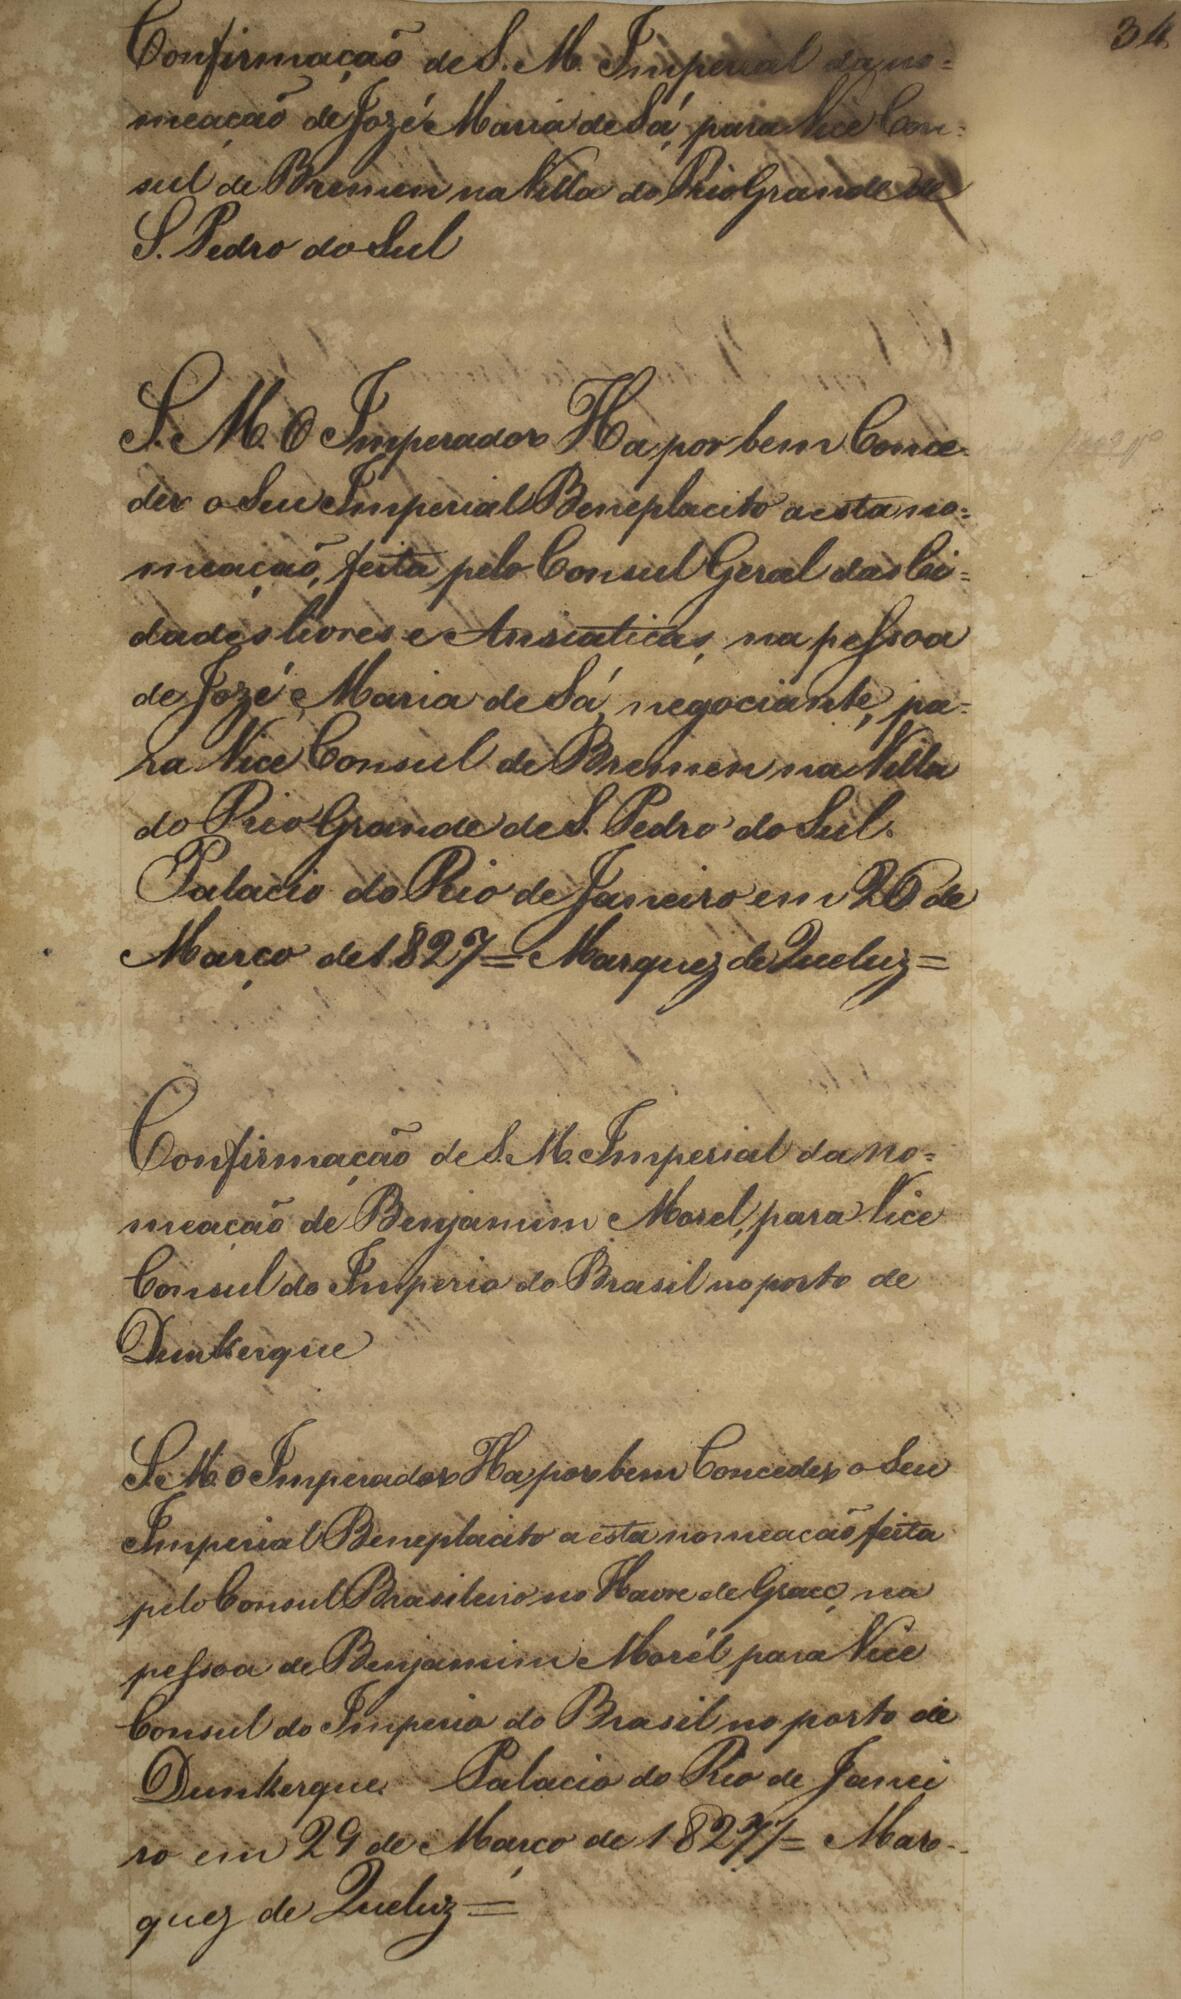 34
Confirmação de S. M. Imperial da no=
meação de Jozé Maria de Sá, para Vice Con=
sul de Bremen na Villa do Rio Grande de
S. Pedro do Sul
S. M. O Imperador Ha por bem Conce-
der o Seu Imperial Beneplacito a esta no=
meação, feita pelo Consul Geral das Ci=
dades livres e Ansiaticas, na pessoa
de Jozé Maria de Sá, negociante, pa-
ra Vice Consul de Bremen na Villa
do Rio Grande de S. Pedro do Sul.
Palacio do Rio de Janeiro em 26 de
Março de 1827= Marquez de Queluz=
Confirmação de S. M. Imperial da no=
meação de Benjamim Morel, para Vice
Consul do Imperio do Brasil no porto de
Dunkerque
S. M. O Imperador Ha por bem Conceder o Seu
Imperial Beneplacito a esta nomeacão feita
pelo Consul Brasileiro no Havre de Grace, na
pessoa de Benjamim Morél para Vice
Consul do Imperio do Brasil no porto de
Dunkerque. Palacio do Rio de Janei
ro em 29 de Março de 1827= Mar-
quez de Queluz=